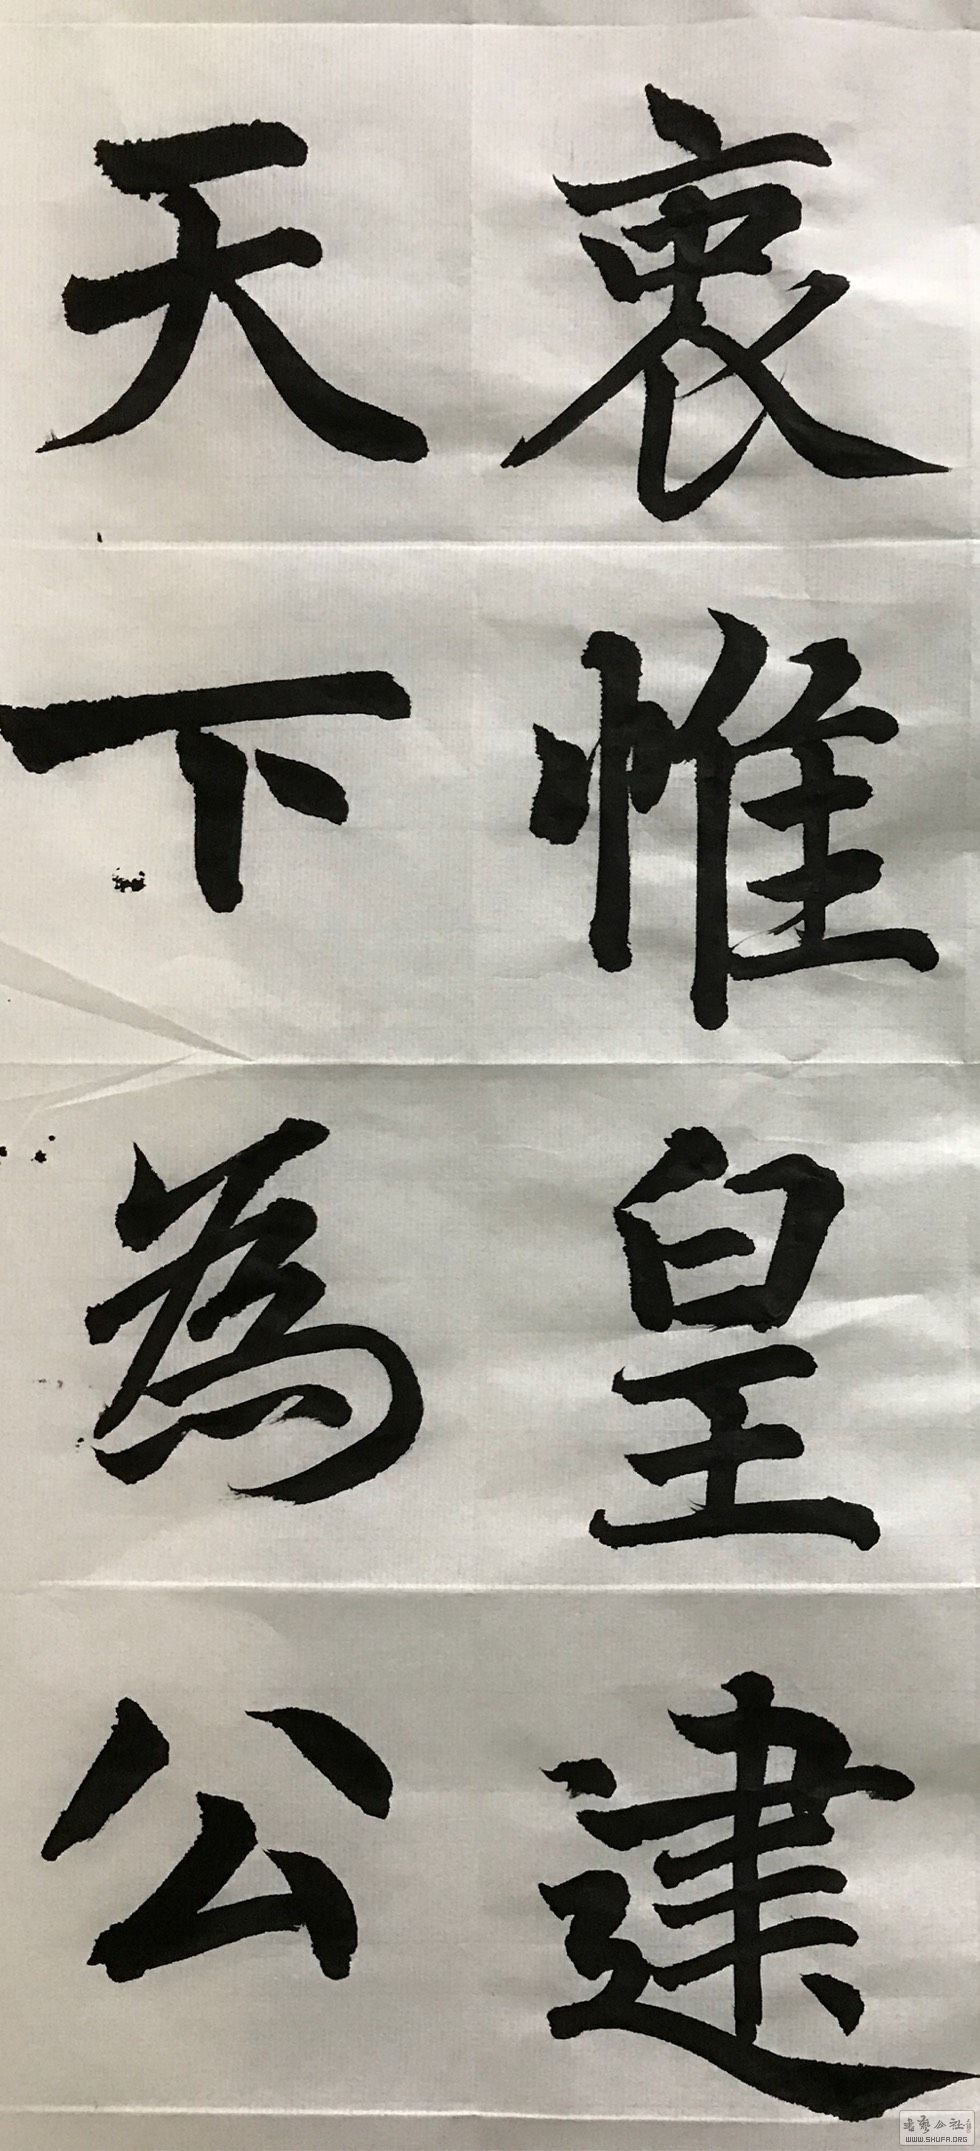 衷惟皇建
天下為公
书艺公社
WWW.SHUFA.ORG